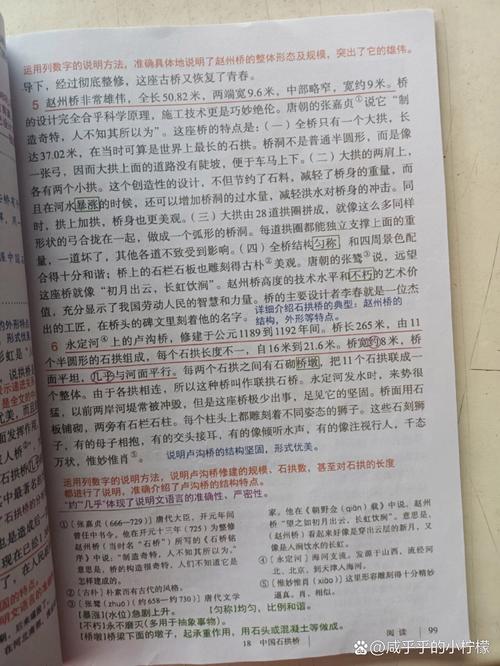 运用列数字的说明方法，准确具体地说明了赵州桥的整体形态及规模，突出了它的雄伟。
导下，经过彻底整修，这座古桥又恢复了青春。
5 赵州桥非常雄伟，全长50.82米，两端宽9.6米，中部略窄，宽约9米。桥
的设计完全合乎科学原理，施工技术更是巧妙绝伦。唐朝的张嘉贞①说它“制
造奇特，人不知其所以为”。这座桥的特点是：（一）全桥只有一个大拱，长
达37.02米，在当时可算是世界上最长的石拱。桥洞不是普通半圆形，而是像
一张弓，因而大拱上面的道路没有陡坡，便于车马上下。（二）大拱的两肩上，
各有两个小拱。这个创造性的设计，不但节约了石料，减轻了桥身的重量，而
且在河水暴涨的时候，还可以增加桥洞的过水量，减轻洪水对桥身的冲击。同
时，拱上加拱，桥身也更美观。（三）大拱由28道拱圈拼成，就像这么多同样
形状的弓合拢在一起，做成一个弧形的桥洞。每道拱圈都能独立支撑上面的重
量，一道坏了，其他各道不致受到影响。（四）全桥结构匀称，和四周景色配
合得十分和谐；桥上的石栏石板也雕刻得古朴②美观。唐朝的张鷟③说，远望
这座桥就像“初月出云，长虹饮涧”。赵州桥高度的技术水平和不朽的艺术价
值，充分显示了我国劳动人民的智慧和力量。桥的主要设计者李春就是一位杰
出的工匠，在桥头的碑文里刻着他的名字。详细介绍石拱桥的典型：赵州桥的
结构，外形等特点。
6 永定河④上的卢沟桥，修建于公元1189到1192年间。桥长265米，由11
个半圆形的石拱组成，每个石拱长度不一，自16米到21.6米。桥宽约8米，桥
面平坦，几乎与河面平行。每两个石拱之间有石砌桥墩，把11个石拱联成一
个整体。由于各拱相连，所以这种桥叫作联拱石桥。永定河发水时，来势很
猛，以前两岸河堤常被冲毁，但是这座桥极少出事，足见它的坚固。桥面用石
板铺砌，两旁有石栏石柱。每个柱头上都雕刻着不同姿态的狮子。这些石刻狮
子，有的母子相抱，有的交头接耳，有的像倾听水声，有的像注视行人，千态
万状，惟妙惟肖⑤。说明卢沟桥的结构坚固，形式优美。
运用列数字的说明方法，说明卢沟桥修建的规模、石拱数，甚至对石拱的长度
都进行了说明，准确介绍了卢沟桥的结构特点。
“约”“几乎”体现了说明文语言的准确性、严密性。
①〔张嘉贞（666—729）〕唐代大臣，开元年间
曾任中书令。他在开元十三年（725）为整修
赵州桥（当时名“石桥”）所写的《石桥铭
序》中说：“制造奇特，人不知其所以为。”
意思是，桥的构造很奇特，人们不知道它是
怎样建成的。
②〔古朴〕朴素而有古代的风格。
③〔张鷟（zhuó）（约658—约730）〕唐代文学
家。他在《朝野佥（qiān）载》中说，赵州
桥“望之如初月出云，长虹饮涧”。意思是，
（赵州桥）看起来好像是穿出云层的新月，又
像是入涧饮水的长虹。
④〔永定河〕海河支流。发源于山西，流经河
北、北京，到天津入海河。
⑤〔惟妙惟肖（xiào）〕这里形容雕刻得十分精妙
逼真。肖，相似。
[暴涨]（水位）急剧上升。 [匀称]均匀、比例和谐。
[不朽]永不磨灭（多用于抽象事物）。
[桥墩]桥梁下面的墩子，起承重作用，用石头或混凝土等做成。
阅读 99
18 中国石拱桥
@咸乎乎的小柠檬